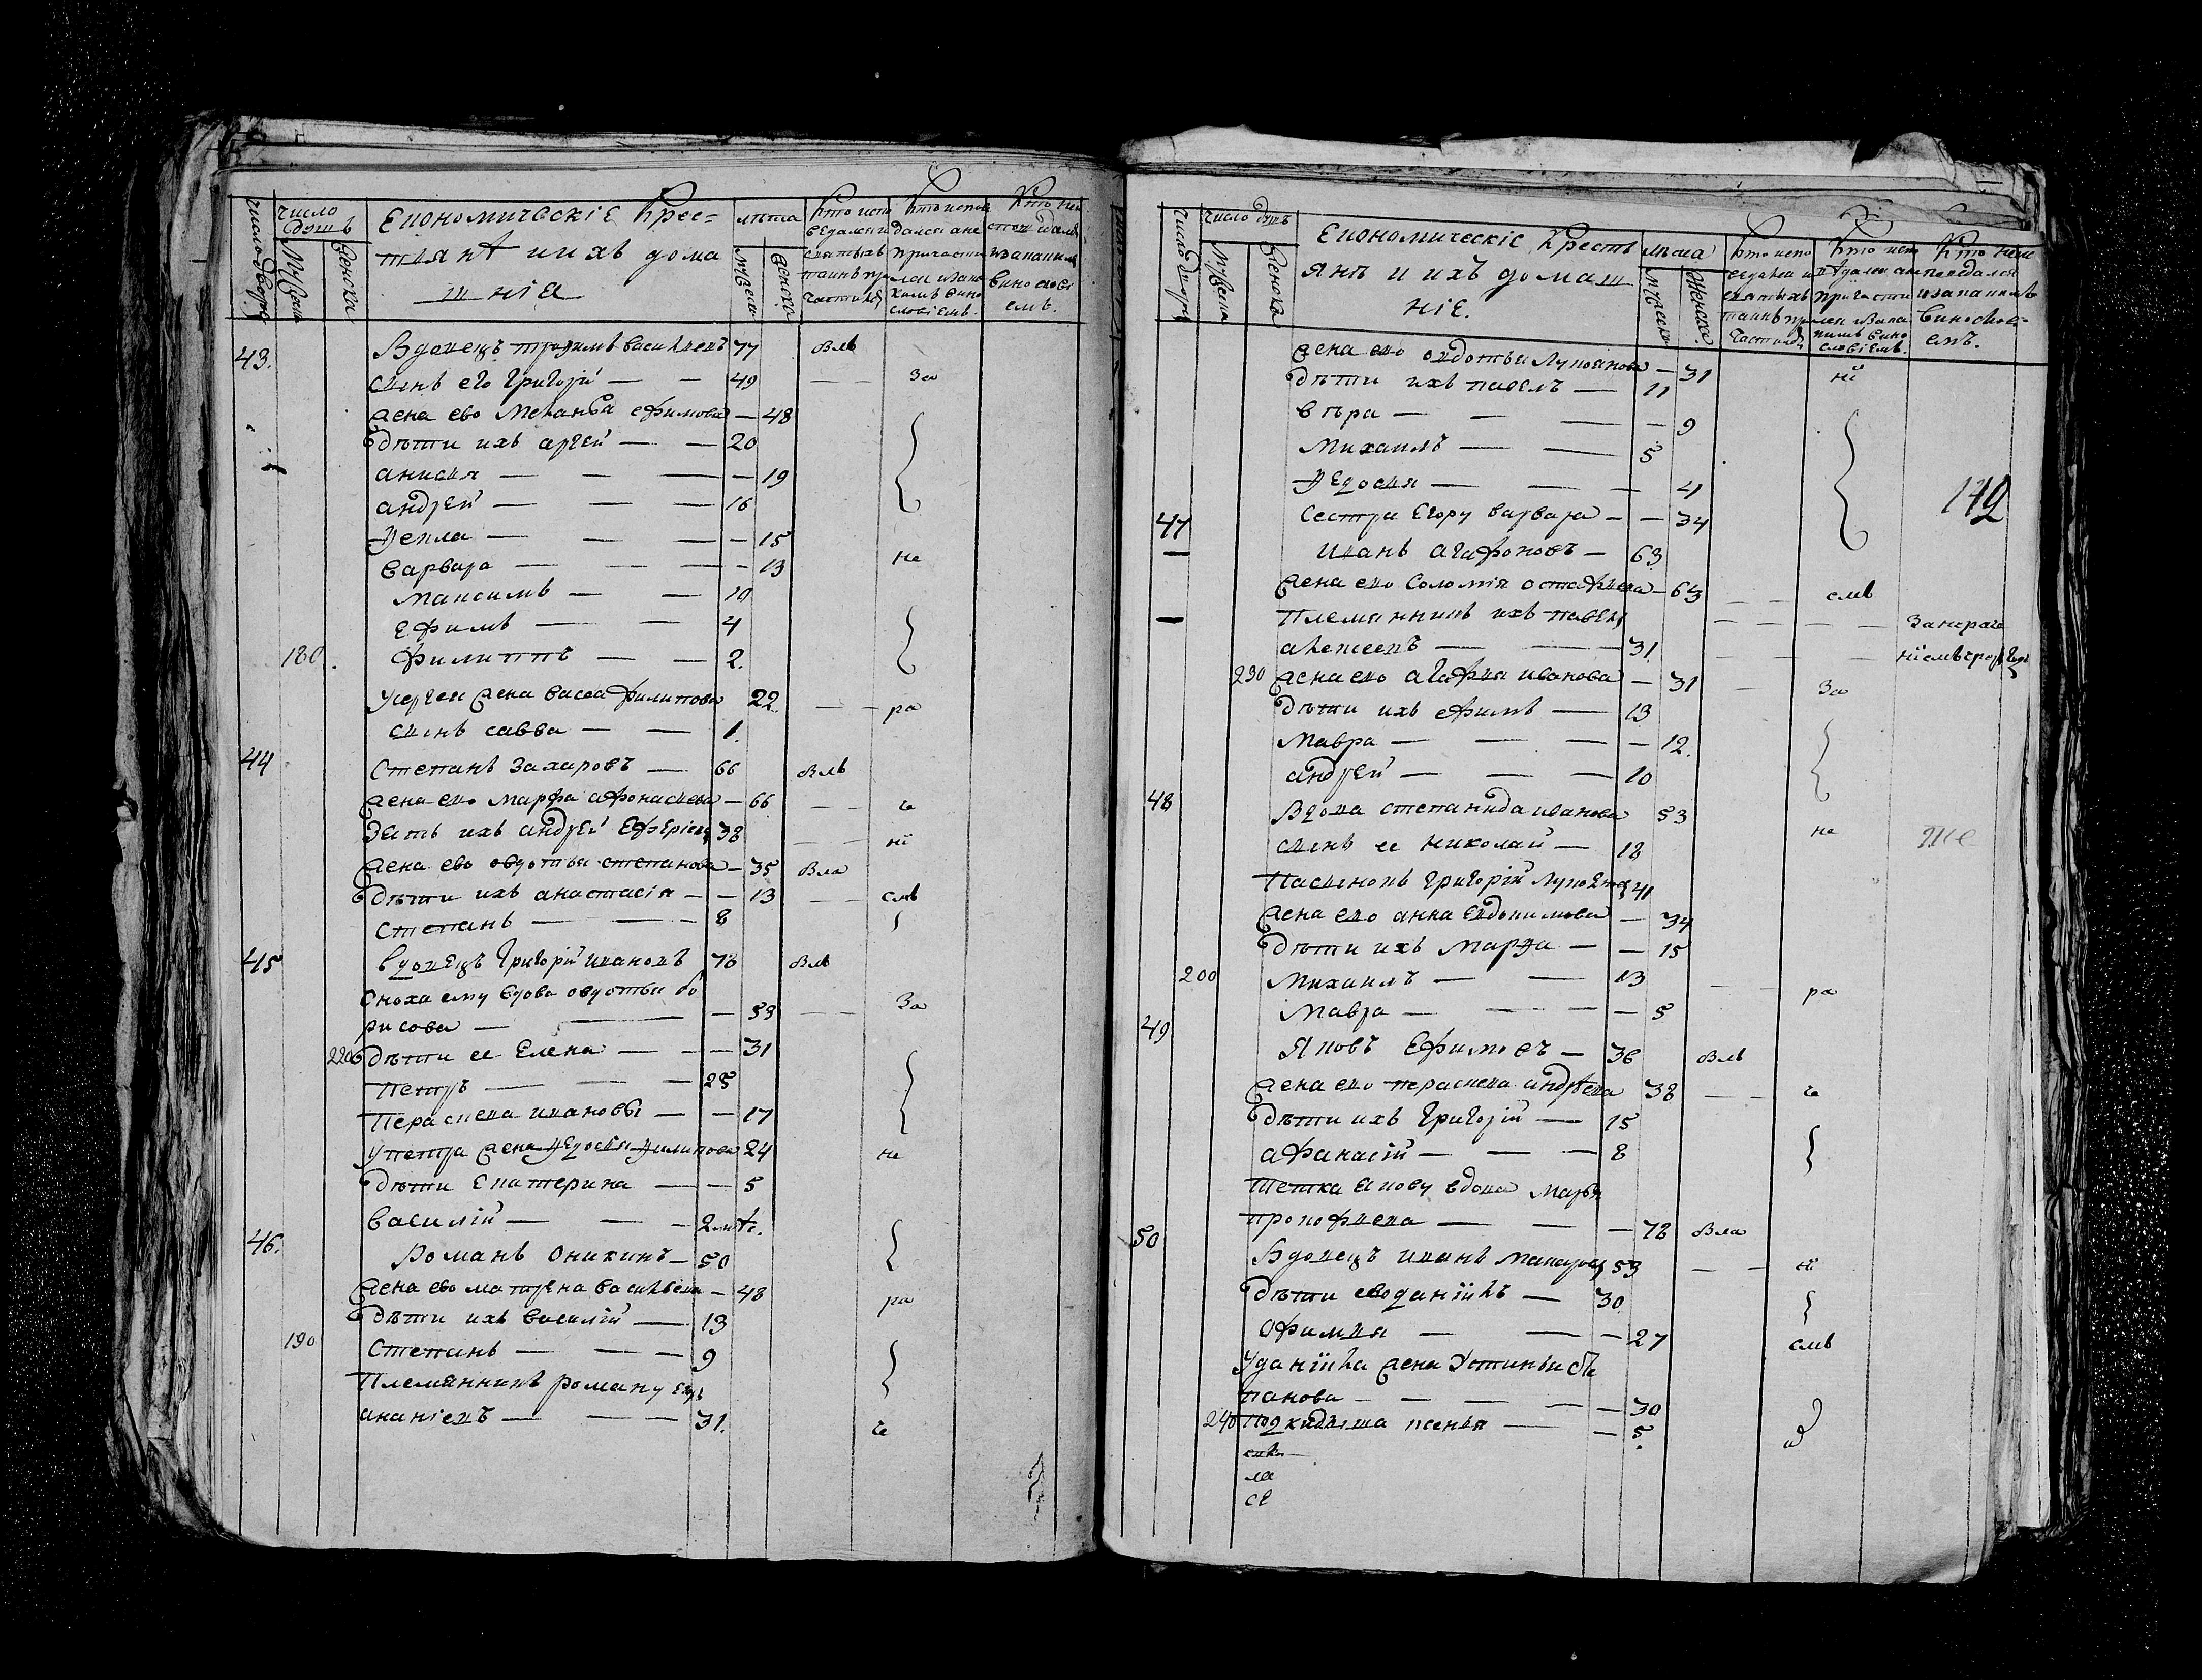 число дворо
число душъ
мужеска
женска
Економическіе крес=
тіянѣ и ихъ дома
шніа
лѣта
мужеска
женска
Кто испо
ведался и
святыхъ
таинъ при
частился
Кто испов
дался а не
причасти
лся
словіемъ.
Кто не
емъ.
43.
Вдовецъ трофимъ васильевъ 77 былъ
сынъ его григорій — — 49 — — За
жена ево меланья ефимова — 48
дѣти ихъ сергей — — 20
анисья — — — 19
андрей — — — 16
Фекла — — — 15
варвара — — — 13 не
максимъ — — 10
ефимъ — — 4
180. филиппъ — — 2.
жена васса филипова 22 — — ра
сынъ савва — — 1.
44 Степанъ захаровъ — 66 былъ
жена ево марфа афонасьева — 66 — — че
Зять ихъ андрей 38 — — ні
жена ево овдотья степанова — 35 была
дѣти ихъ анастасія — — 13 — — емъ
степанъ — — 8
45 вдовецъ григорій ивановъ 78 былъ
Сноха ему вдова овдотья бо
рисова — — — 53 — — За
220 дѣти ее елена — — — 31
петръ — — — 25
Пераскева ивановы — — 17
у петра жена Федосья Филипова 24 не
дѣти екатерина — — 5
василій — — — 2
46. Романъ оникинъ — 50
жена ево матрена васильева — 48 ра
дѣти ихъ василій — 13
190 степанъ — — — 9
Племянникъ роману егоръ
ананіевъ — — — 31. че
число двора
число душъ
мужеска
женска
Економическіе кресть
янѣ и ихъ домаш
ніе.
лѣта
мужеска
женска
Кто испо
ведался и
святыхъ
таинъ при
частился
Кто исп
ведался а не
причасти
лся
словіемъ.
Кто не
споведался
за каким
винослови=
емъ.
жена ево овдотья лупоянова — 31 ні
дѣти ихъ павелъ — 11
вѣра — — — 9
михаилъ — — 5
Федосья — — — 4
142
сестра егору варвара — — 34
47 иванъ агафоновъ — 63
жена ево соломія остафьева — 63 — — емъ
племянникъ ихъ павелъ — — — —
алексеевъ — — 31.
230 жена ево агафья иванова — 31 — За
дѣти ихъ ефимъ — 13
мавра — — — 12.
андрей — — — 10
48 Вдова степанида иванова 53
не
сынъ ее николай — 18
Пасынокъ григорій 41
жена ево анна евдокимова — 34
дѣти ихъ марфа — — 15
200 михаилъ — — 13 — — ра
мавра — — — 5
49 Яковъ ефимовъ — 36 былъ
жена ево пераскева андреева 38 — — че
дѣти ихъ григорій — 15
афанасій — — — 8
тетка якову вдова марья
прокофьева — — — 78 была
50 Вдовецъ иванъ макаровъ 53 — — ні
дѣти ево даніилъ — 30
офимья — — — 27 емъ
у даніила жена устинья сте
панова — — — — 30
240 подкидыша ксенья — — 5.
ла
се